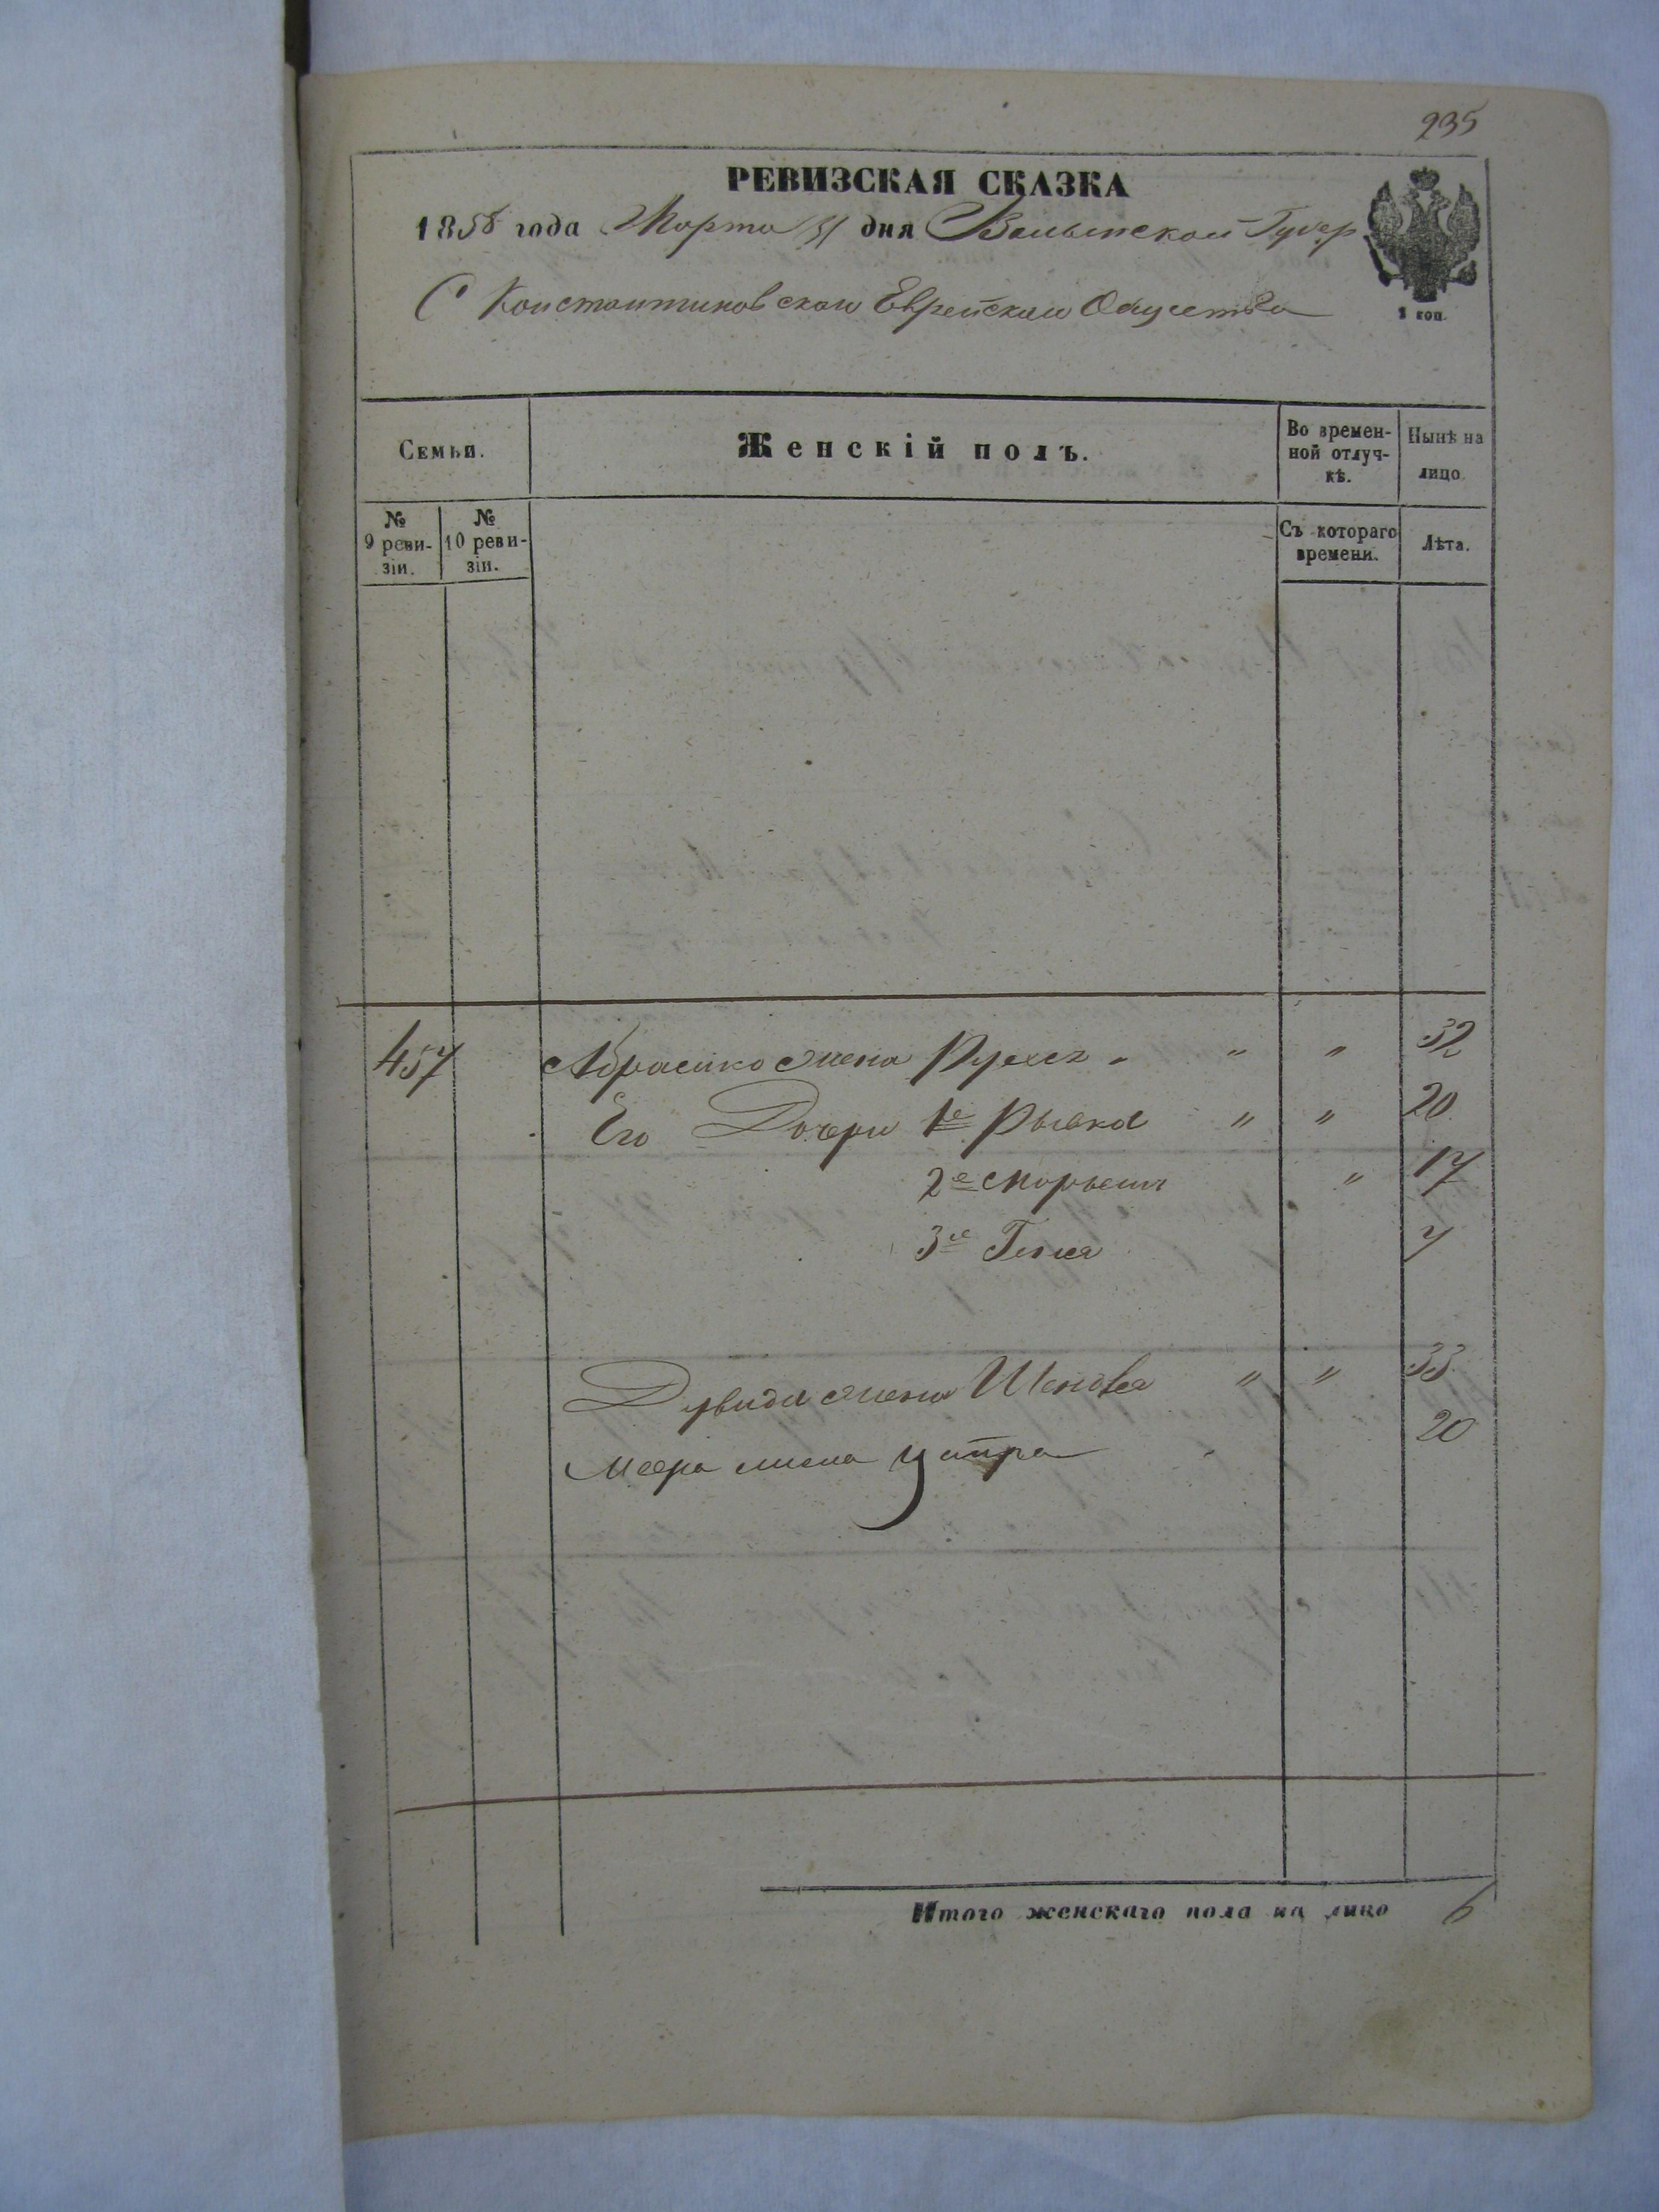 235
РЕВИЗСКАЯ СКАЗКА
1858 года Марта 31 дня Волынской Губер
С Константиновскаго Еврейскаго Общества
1 коп.
Семьи.
Женскій полъ.
Во времен-
ной отлуч-
кѣ.
Нынѣ на
лицо.
№
9 реви-
зіи.
№
10 реви-
зіи.
Съ котораго
времени.
Лѣта.
457 Абрамко жена Рухля " " 32
Его Дочери 1е Рывка " " 20
2е Марьем " 17
3е Геня 7
Дувида жена Шендля " " 33
Меера жена Ципра 20
Итого женскаго пола на лицо 6